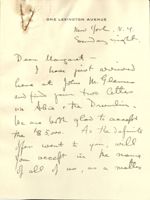 ONE LEXINGTON AVENUE
New York, N.Y.
Sunday night
Dear Margaret –
I have just arrived
here at John M. Glenns
and find your two letters
We are both glad to accept
the $8,000. As the definite
offer went to you, will
you accept in the name
of all of us, as a matter